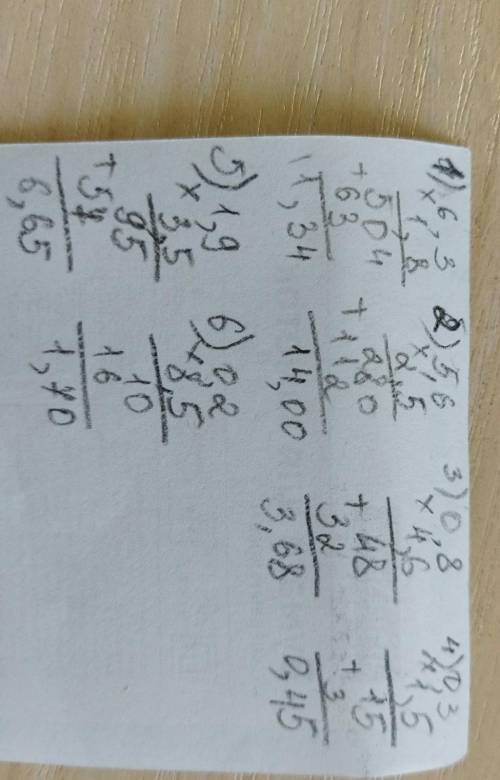 1) 6,3
× 1,8
504
+ 63
11,34
2) 5,6
× 2,5
280
+ 112
14,00
3) 0,8
× 4,6
48
+ 32
3,68
4) 0,3
× 1,5
15
+ 3
0,45
5) 1,9
× 3,5
95
+ 57
6,65
6) 0,2
× 8,5
10
16
1,70